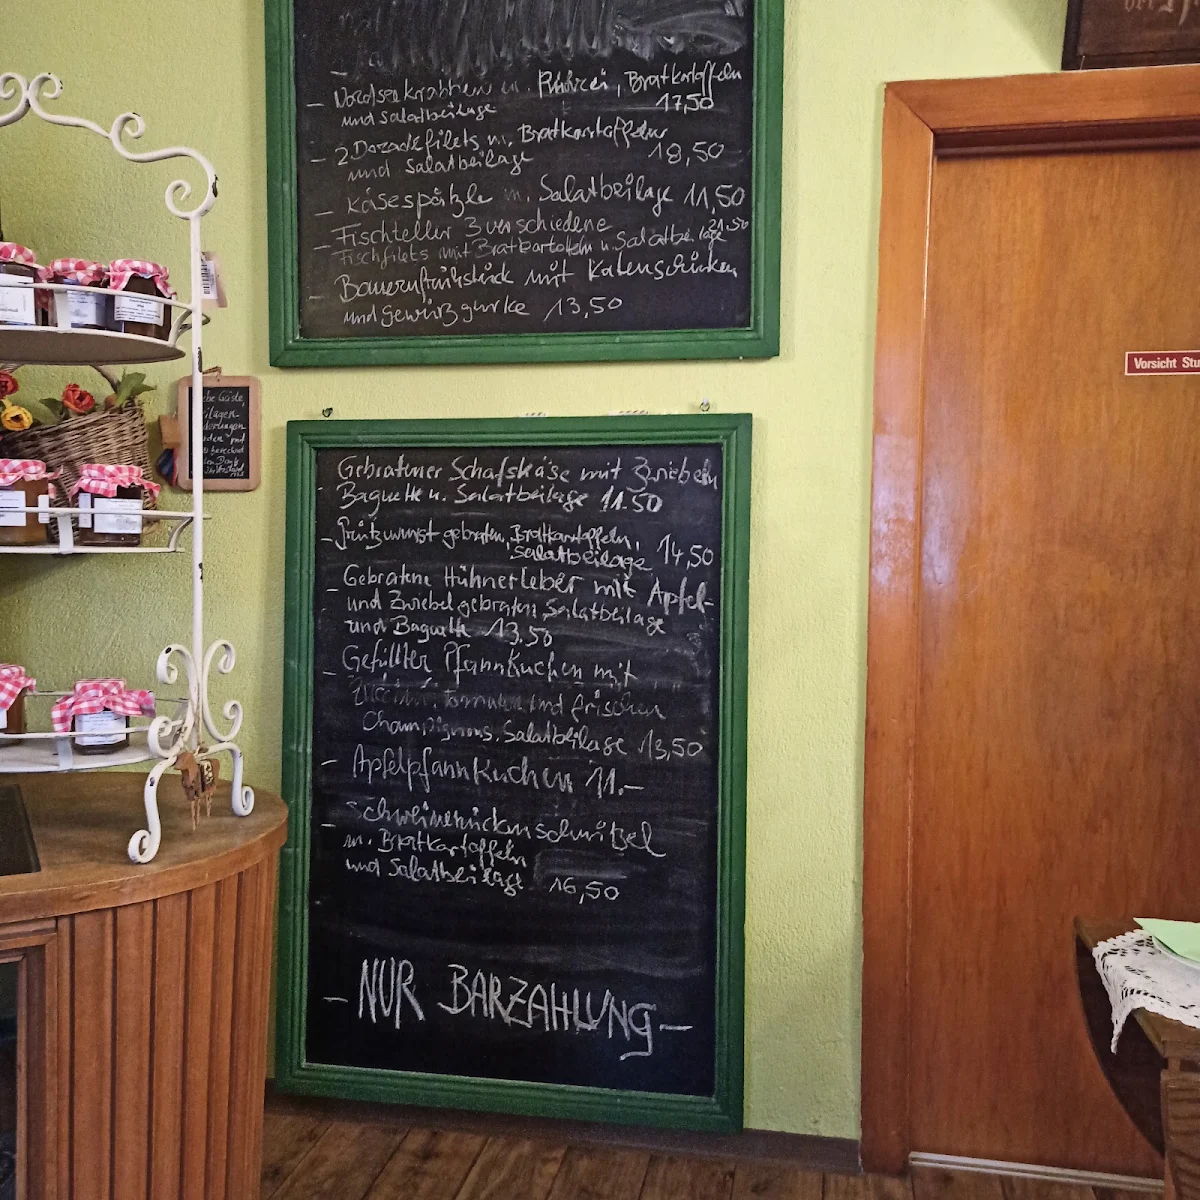 – Nordseekrabben m. Rührei, Bratkartoffeln
und Salatbeilage 17,50
– 2 Doradefilets m. Bratkartoffeln
und Salatbeilage 18,50
– Käsespätzle m. Salatbeilage 11,50
– Fischteller 3 verschiedene 21.50
Fischfilets mit Bratkartoffeln u. Salatbeilage
– Bauernfrühstück mit Katenschinken
und Gewürzgurke 13,50
Gebratener Schafskäse mit Zwiebeln
– Baguette u. Salatbeilage 11.50
– Grützwurst gebraten, Bratkartoffeln,
Salatbeilage 14,50
– Gebratene Hühnerleber mit Apfel-
und Zwiebel gebraten, Salatbeilage
und Baguette 13.50
– Gefüllter Pfannkuchen mit
Zucchini, Tomaten und frischen
Champignons, Salatbeilage 13,50
– Apfelpfannkuchen 11.–
– Schweinerückenschnitzel
m. Bratkartoffeln
und Salatbeilage 16,50
– NUR BARZAHLUNG –
Vorsicht Stu